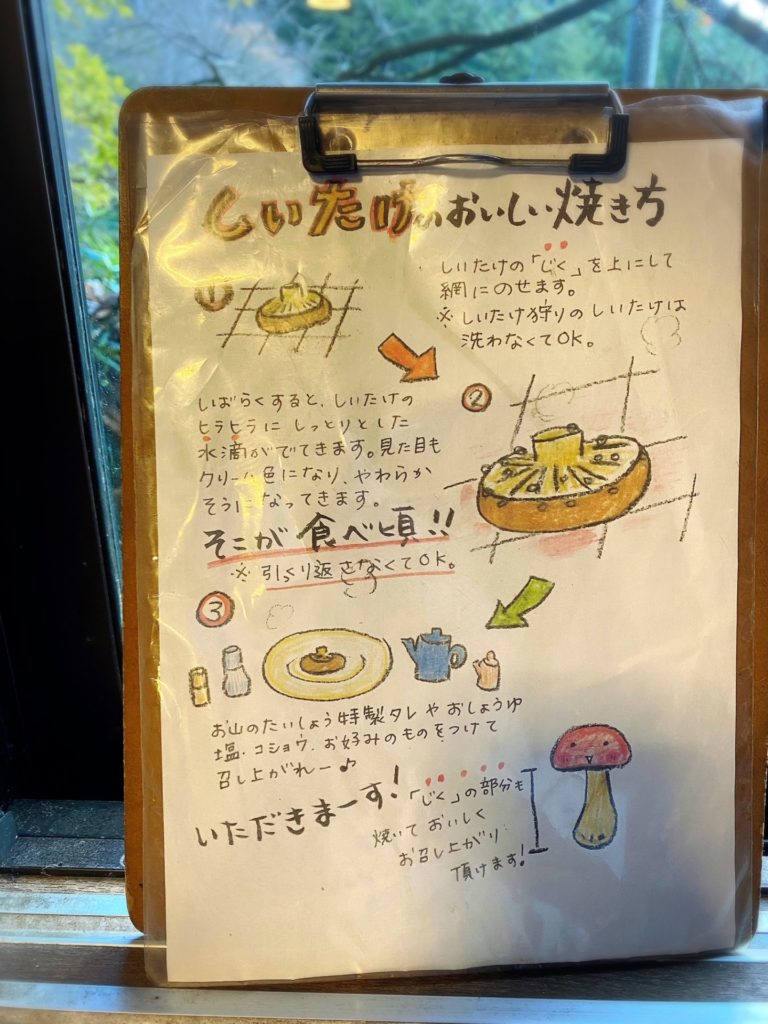 しいたけのおいしい焼き方
①
しいたけの「じく」を上にして
網にのせます。
※しいたけ狩りのしいたけは
洗わなくてOK。
しばらくすると、しいたけの
ヒラヒラに しっとりとした
水滴がでてきます。見た目も
クリーム色になり、やわらか
そうになってきます。
そこが 食べ頃!!
※引っくり返さなくてOK。
②
③
お山のたいしょう特製タレ や おしょうゆ
塩・コショウ、お好みのものをつけて
召し上がれー♪
いただきまーす!
「じく」の部分も
焼いて おいしく
お召し上がり
頂けます!